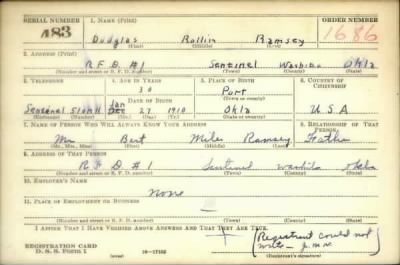 SERIAL NUMBER 1. NAME (Print) ORDER NUMBER
483 Douglas Rollin Ramsey 1686
(First) (Middle) (Last)
2. ADDRESS (Print)
R.F.D. #1 Sentinel Washita Okla
(Number and street or R. F. D. number) (Town) (County) (State)
3. TELEPHONE 4. AGE IN YEARS 5. PLACE OF BIRTH 6. COUNTRY OF CITIZENSHIP
30 Port
DATE OF BIRTH (Town or county)
Sentinel Jan 27 1910 Okla U.S.A
(Exchange) (Number) (Mo.) (Day) (Yr.) (State or country)
7. NAME OF PERSON WHO WILL ALWAYS KNOW YOUR ADDRESS 8. RELATIONSHIP OF THAT PERSON
Mr. Bert Miles Ramsey Father
(Mr., Mrs., Miss) (First) (Middle) (Last)
9. ADDRESS OF THAT PERSON
R F D #1 Sentinel Washita Okla
(Number and street or R. F. D. number) (Town) (County) (State)
10. EMPLOYER'S NAME
None
11. PLACE OF EMPLOYMENT OR BUSINESS
(Number and street or R. F. D. number) (Town) (County) (State)
I AFFIRM THAT I HAVE VERIFIED ABOVE ANSWERS AND THAT THEY ARE TRUE.
(Registrant could not
REGISTRATION CARD write -
D. S. S. FORM 1 (Registrant's signature)